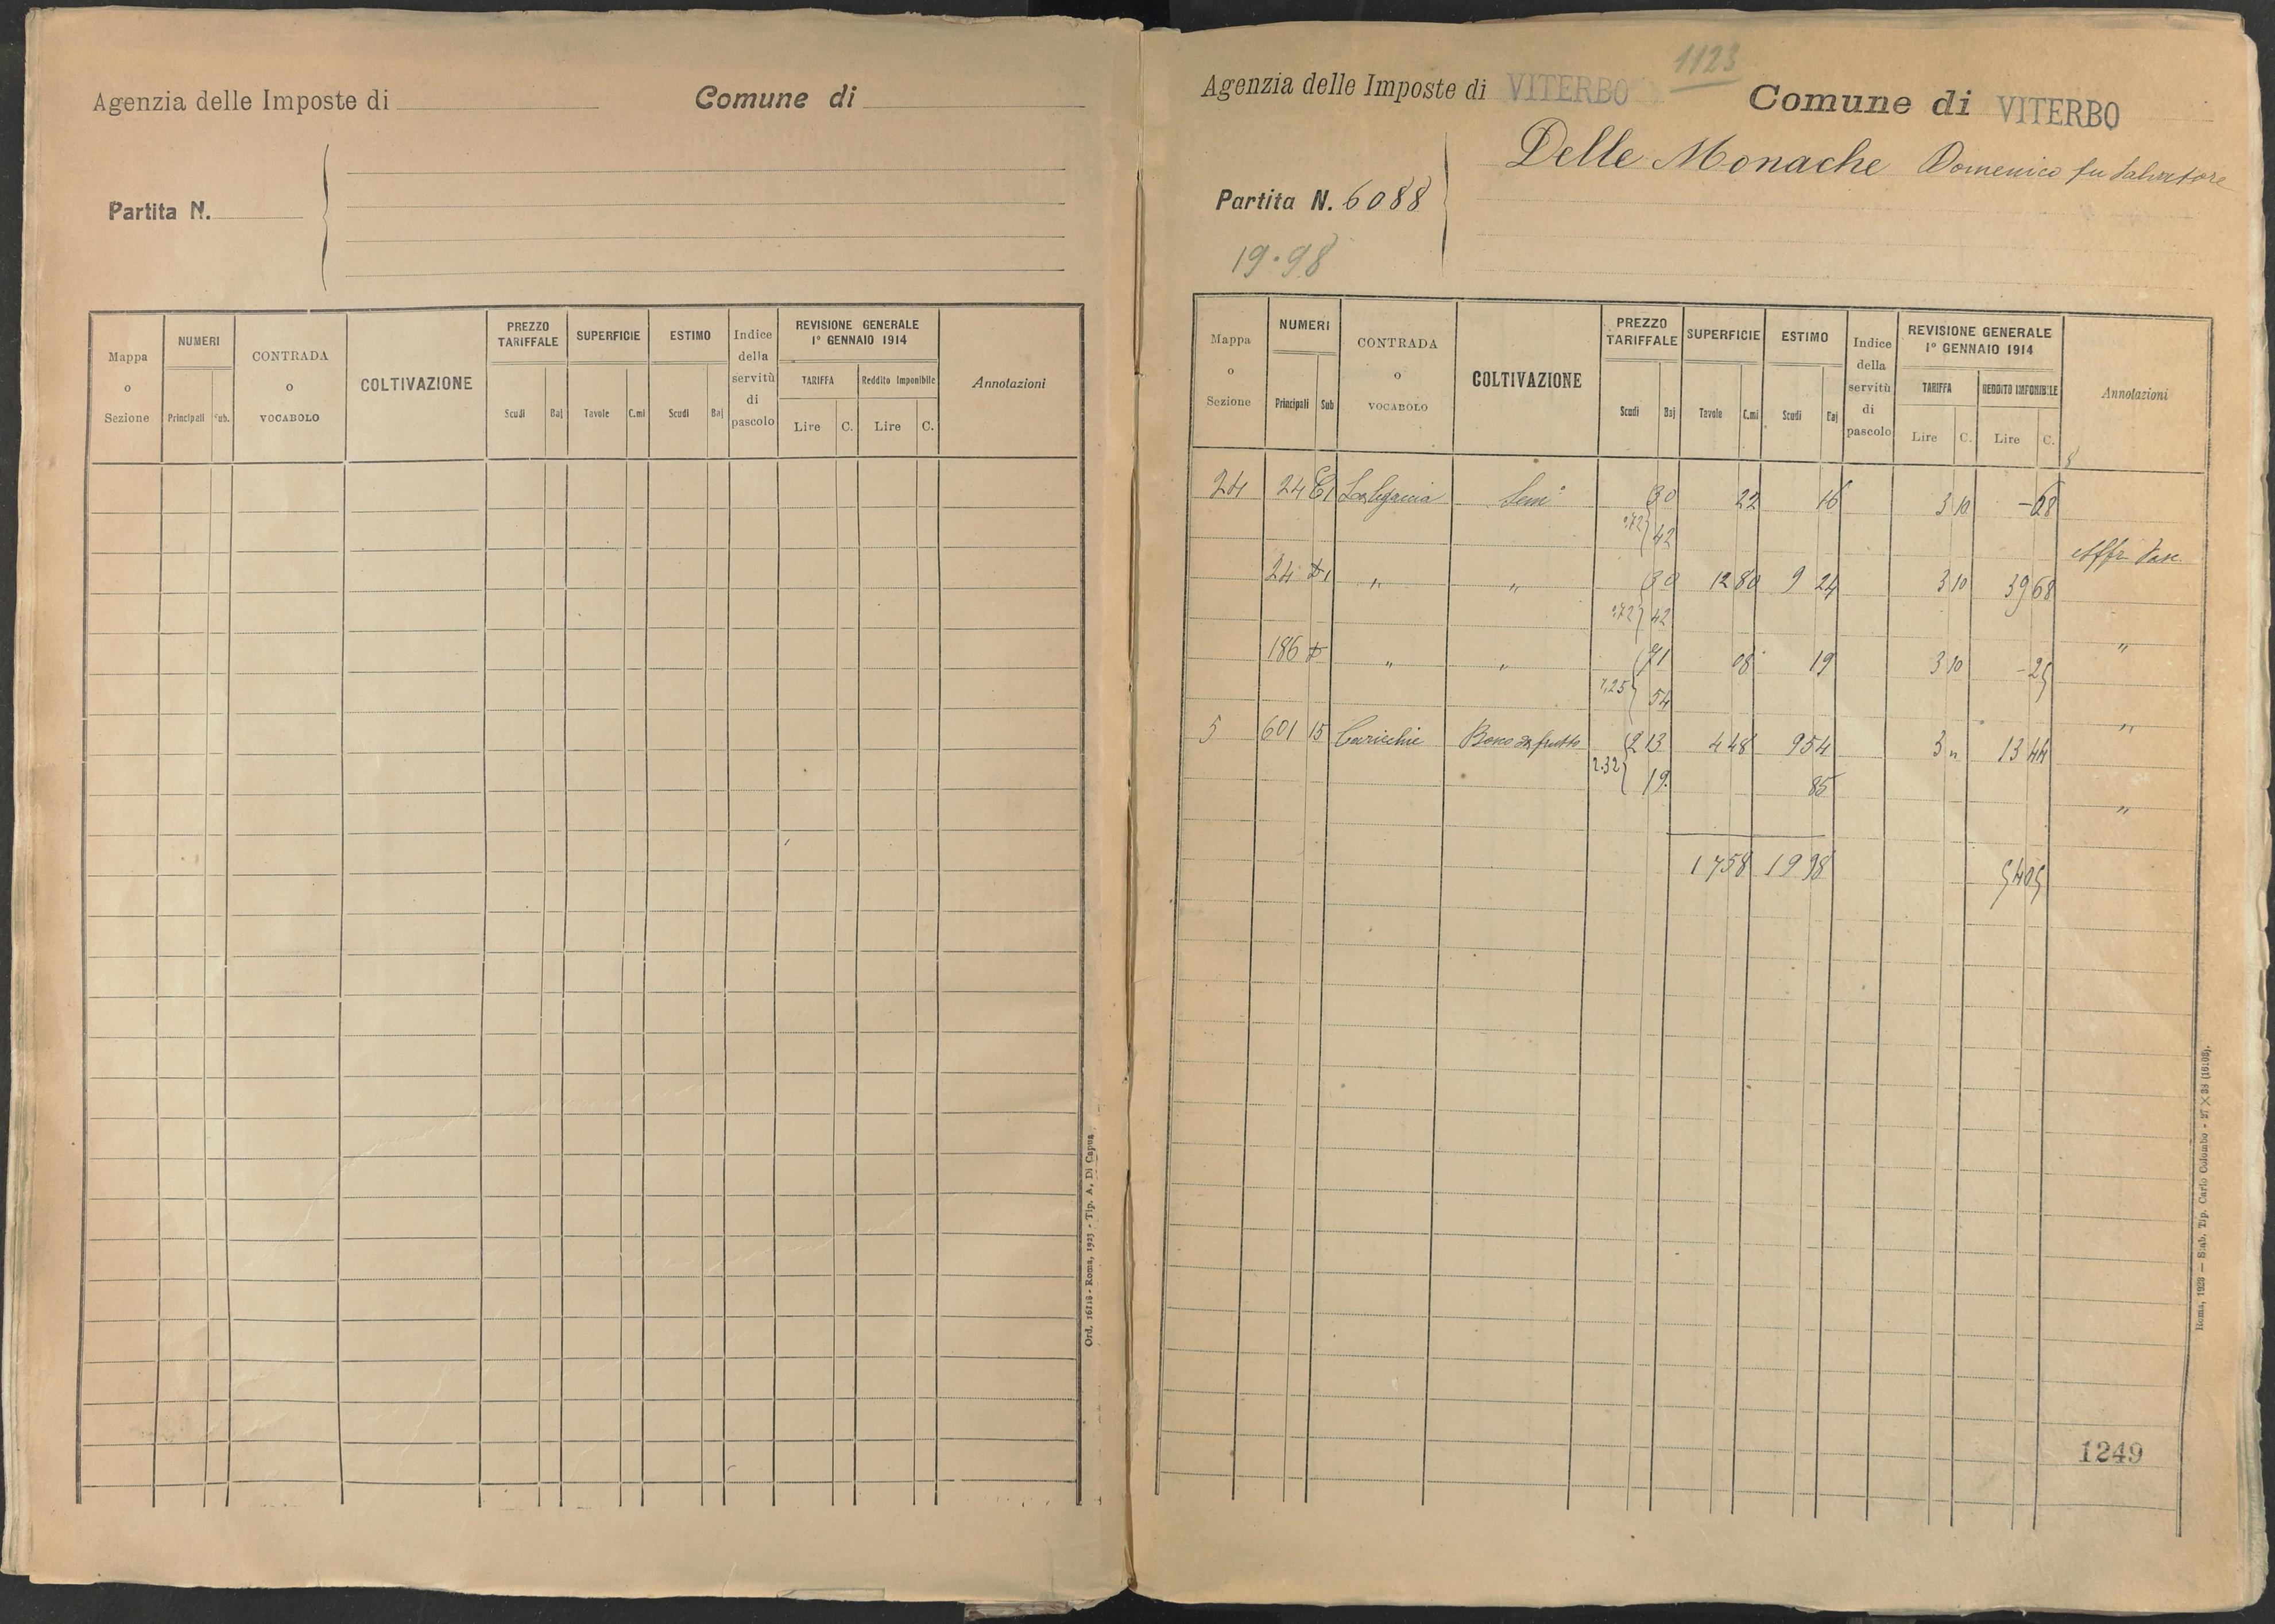 Agenzia delle Imposte di
Comune di
Partita N.
Mappa o Sezione
NUMERI
Principali
Sub.
CONTRADA o VOCABOLO
COLTIVAZIONE
PREZZO TARIFFALE
Scudi
Baj
SUPERFICIE
Tavole
C.mi
ESTIMO
Scudi
Baj
Indice della servitù di pascolo
REVISIONE GENERALE
1° GENNAIO 1914
TARIFFA
Lire
C.
Reddito Imponibile
Lire
C.
Annotazioni
Ord. 16118 - Roma, 1923 - Tip. A. Di Capua
1123
Agenzia delle Imposte di VITERBO
Comune di VITERBO
Delle Monache Domenico fu Salvatore
Partita N. 6088
19.98
Mappa o Sezione
NUMERI
Principali
Sub
CONTRADA o VOCABOLO
COLTIVAZIONE
PREZZO TARIFFALE
Scudi
Baj
SUPERFICIE
Tavole
C.mi
ESTIMO
Scudi
Baj
Indice della servitù di pascolo
REVISIONE GENERALE
1° GENNAIO 1914
TARIFFA
Lire
C.
REDDITO IMPONIBILE
Lire
C.
Annotazioni
24 24 Sem° 30 22 16 3 10 - 68
72 42
Affr.
24 " " 30 12 80 9 24 3 10 39 68
72 42
186 " " 71 08 19 3 10 - 25 "
1.25 54
5 601 15 Bosco da frutto 2 13 4 48 9 54 3 " 13 44 "
2.32 19 85
"
17 58 19 98 54 05
1249
Roma, 1923 — Stab. Tip. Carlo Colombo - 27 × 38 (16108).